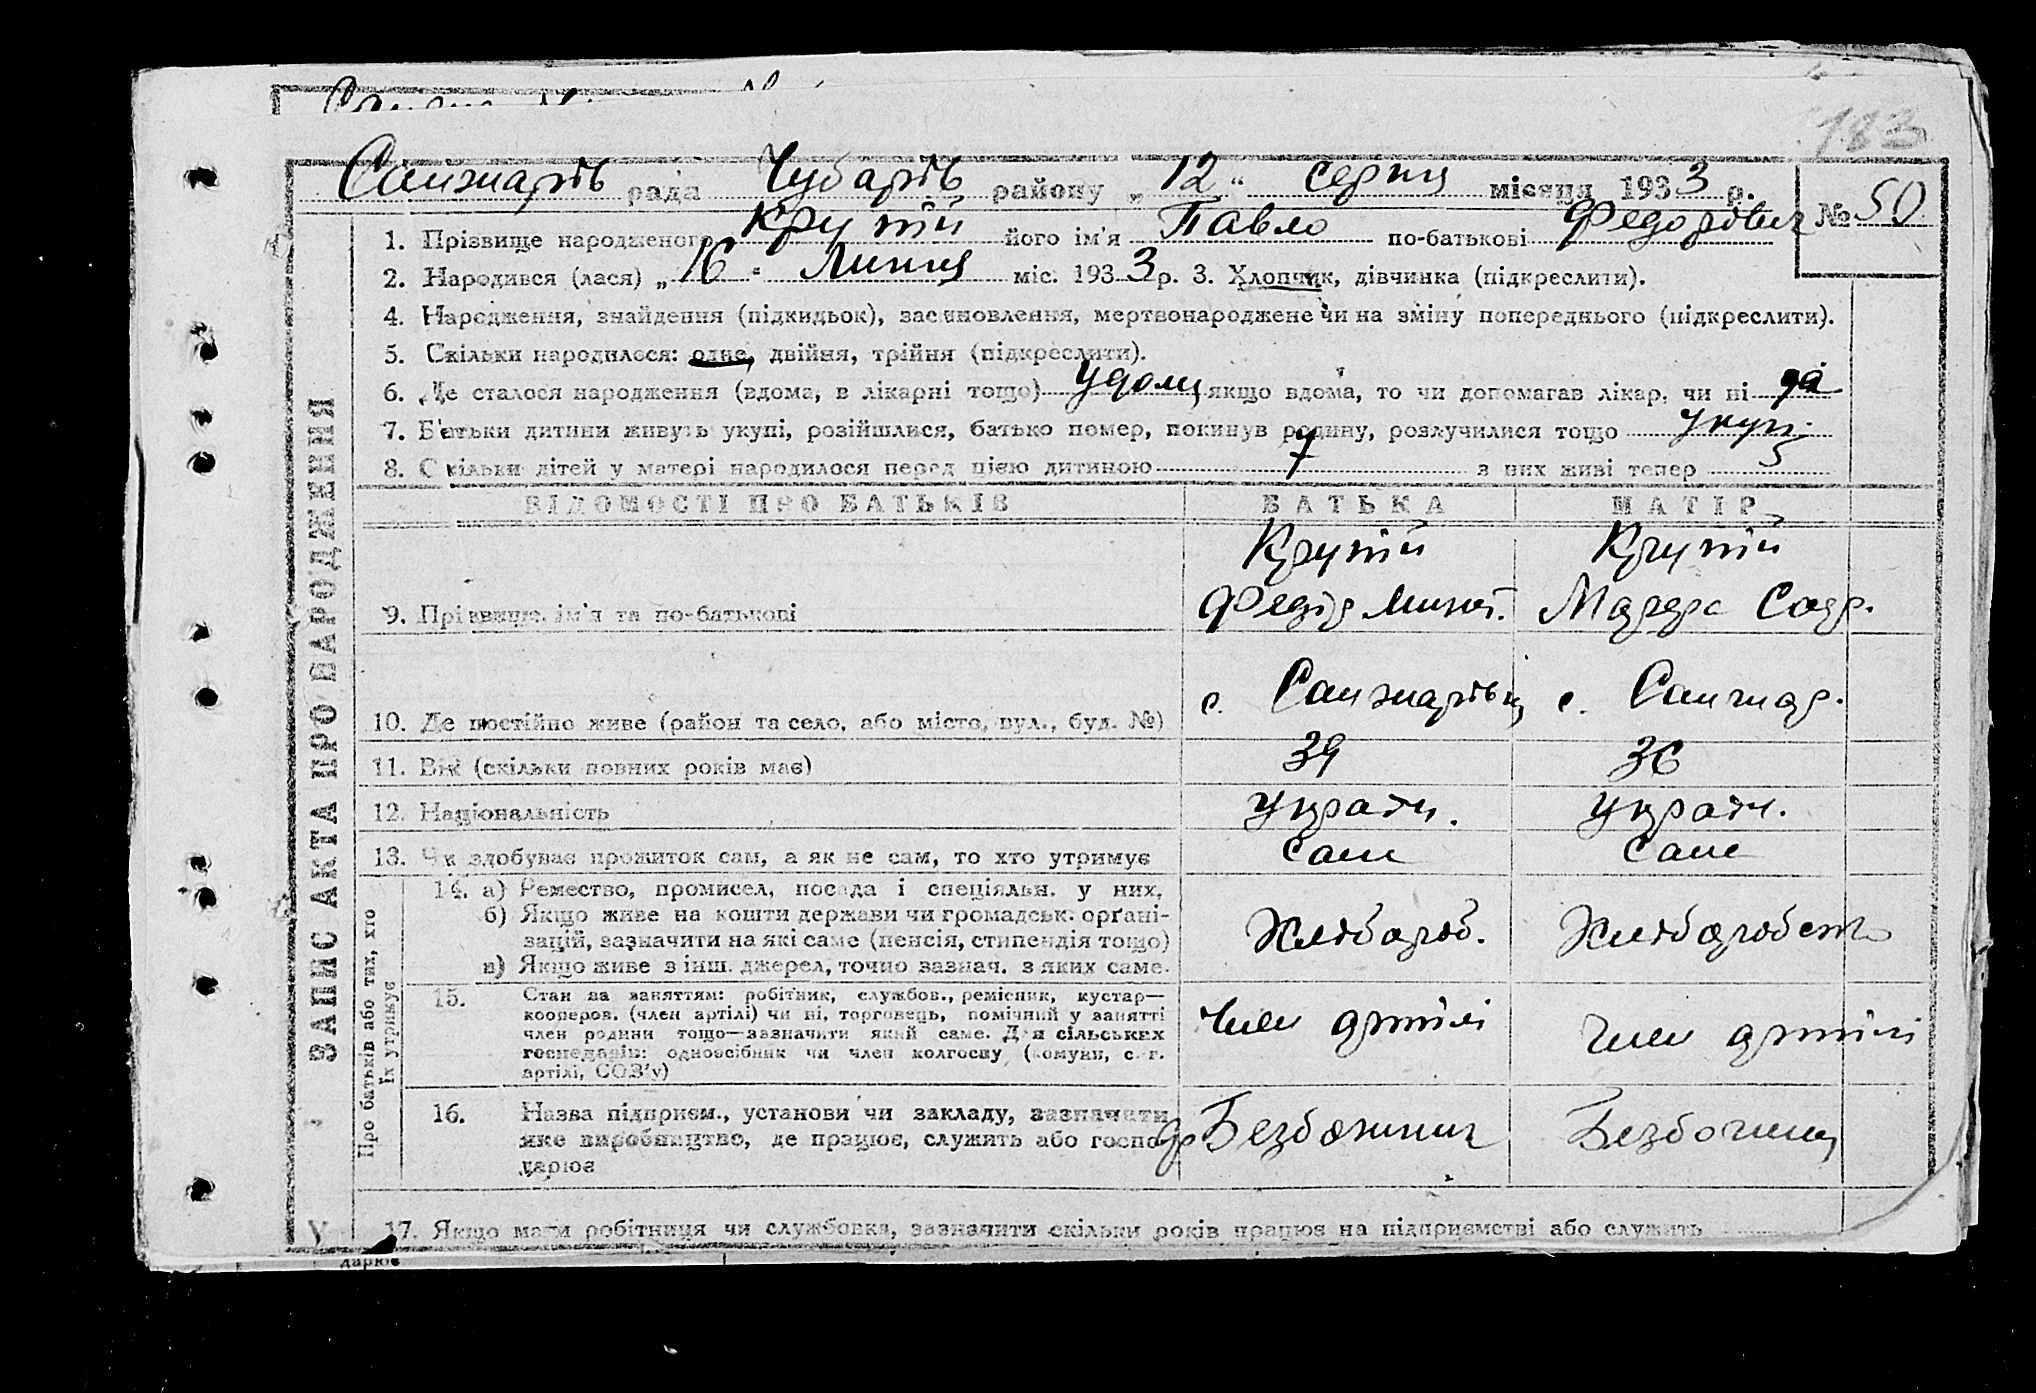 183
Санжарів рада Чубарів району „12“ серпня місяця 1933 р. № 50
1. Прізвище народженого Крутій його ім'я Павло по-батькові Федорович
2. Народився (лася) „16“ Липня міс. 1933 р. 3. Хлопчик, дівчинка (підкреслити).
4. Народження, знайдення (підкидьок), засиновлення, мертвонароджене чи на зміну попереднього (підкреслити).
5. Скільки народилося: одне, двійня, трійня (підкреслити).
6. Де сталося народження (вдома, в лікарні тощо) Удома, якщо вдома, то чи допомагав лікар, чи ні
7. Батьки дитини живуть укупі, розійшлися, батько помер, покинув родину, розлучилися тощо Укупі
8. Скільки дітей у матері народилося перед цією дитиною 7 з них живі тепер 5
ЗАПИС АКТА ПРО НАРОДЖЕННЯ
ВІДОМОСТІ ПРО БАТЬКІВ БАТЬКА МАТІР
Крутій Крутій
9. Прізвище, ім'я та по-батькові Федір
10. Де постійно живе (район та село, або місто, вул., буд. №) с. Санжарівці с. Санжар.
11. Вік (скільки повних років має) 39 36
12. Національність Україн. Україн.
13. Чи здобуває прожиток сам, а як не сам, то хто утримує Сам Сама
Про батьків або тих, хто їх утримує
14. а) Ремество, промисел, посада і спеціяльн. у них,
б) Якщо живе на кошти держави чи громадськ. орґані-
зацій, зазначити на які саме (пенсія, стипендія тощо) Хлібороб. Хлібороб
в) Якщо живе з інш. джерел, точно зазнач. з яких саме.
15. Стан за заняттям: робітник, службов., ремісник, кустар—
кооперов. (член артілі) чи ні, торговець, помічний у занятті
член родини тощо—зазначити який саме. Для сільських
господарів: одноосібник чи член колгоспу (комуни, с.-г.
артілі, СОЗ'у)
Член артілі Член артілі
16. Назва підприєм., установи чи закладу, зазначати
яке виробництво, де працює, служить або госпо-
дарює
Безбожник Безбожник
V 17. Якщо мати робітниця чи службовка, зазначити скільки років працює на підприємстві або служить
дарює